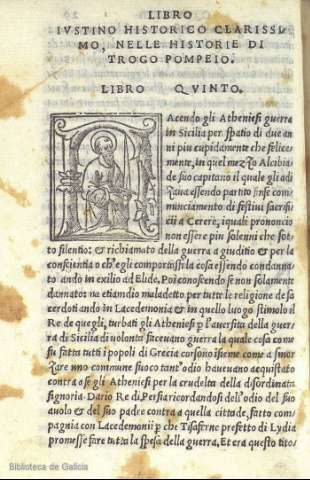 LIBRO
IVSTINO HISTORICO CLARISSI
MO, NELLE HISTORIE DI
TROGO POMPEIO.
LIBRO QVINTO.
Acendo gli Atheniesi guerra
in Sicilia per spatio di due an
ni piu cupidamente che felice
mente, in quel mezzo Alcibia
de suo capitano il quale gli adi
zaua essendo partito
munciamento di festiui sacrifi
cij a Cerere, iquali prononcio
non essere piu solenni che sot
to silentio: & richiamato della guerra a giuditio & per la
conscientia o ch'egli comportissi la cosa essendo condanna
to ando in exilio ad Elide. Poi conoscendo se non solamente
dannato: ma etiamdio maladetto per tutte le religione de sa
cerdoti ando in Lacedemonia & in quello luogo stimolo il
Re de quegli, turbati gli Atheniesi p l'auersita della guer
ra di Sicilia di uolonta faceuano guerra la quale cosa come
fu fatta tutti i popoli di Grecia corsono insieme come a smor
zare uno commune fuoco tant'odio haueuano acquistato
contra a se gli Atheniesi per la crudelta della disordinata
signoria. Dario Re di Persia ricordandosi dell'odio del suo
auolo & del suo padre contra a quella cittade, fatto com
pagnia con Lacedemonij p che Tisaferne prefetto di Lydia
promesse fare tutta la spesa della guerra, Et era questo tito/
Biblioteca de Galicia